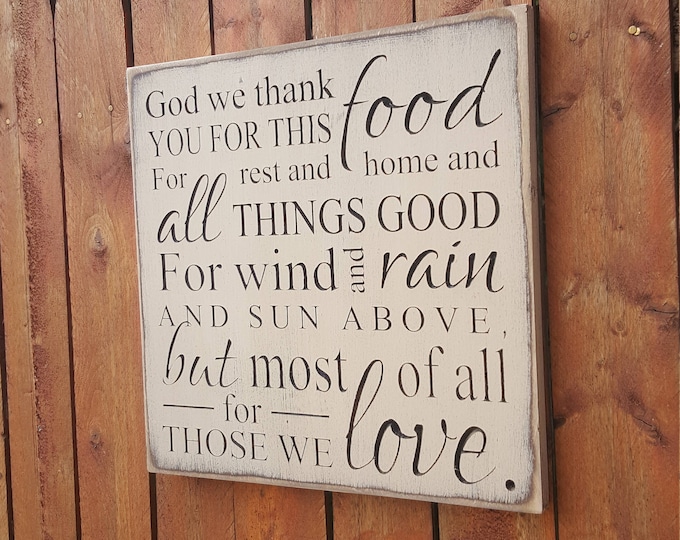 God we thank
YOU FOR THIS food
For rest and home and
all THINGS GOOD
For wind and rain
AND SUN ABOVE,
but most of all
for
THOSE WE love